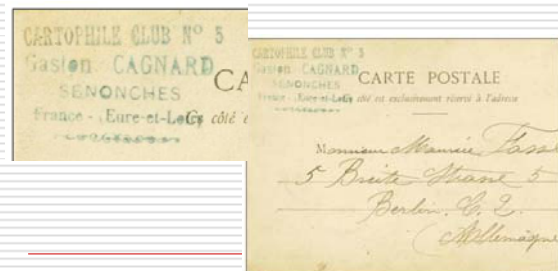 CARTOPHILE CLUB Nº 5
Gaston CAGNARD
SENONCHES
France - Eure-et-Loir
CA
côté e
CARTOPHILE CLUB Nº 5
Gaston CAGNARD
SENONCHES
France - Eure-et-Loir
CARTE POSTALE
Ce côté est exclusivement réservé à l'adresse
Monsieur Maurice
5 Breite Strasse 5
Berlin. C. 2.
(Allemagne